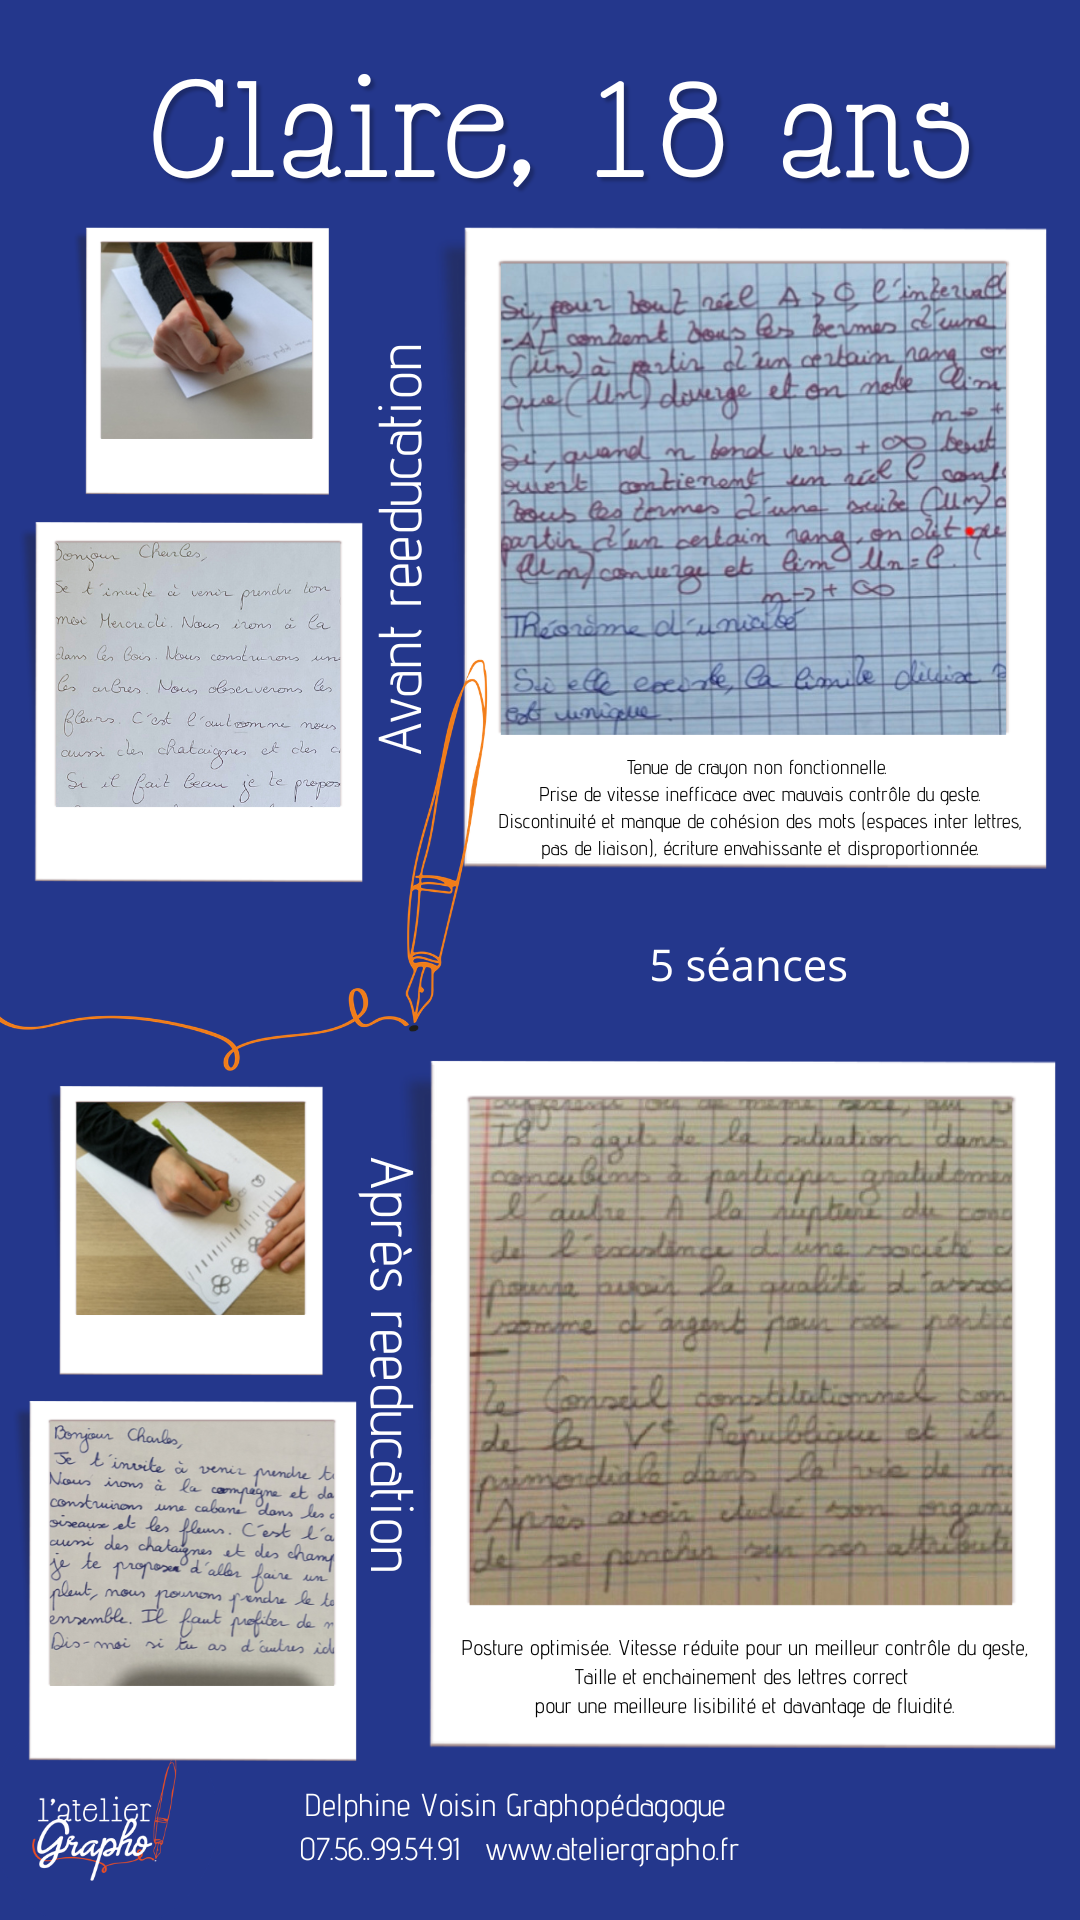 Claire, 18 ans
Avant reeducation
Bonjour Charles,
Je t'invite à venir prendre ton
moi Mercredi. Nous irons à la
dans les bois. Nous construirons un
les arbres. Nous observerons les
fleurs. C'est l'automne nous
aussi des chataignes et des c
Si il fait beau je te propos
Si, pour tout réel A > 0, l'intervall
-A[ contient tous les termes d'une
(Un) à partir d'un certain rang on
que (Un) diverge et on note lim
n→ +
Si, quand n tend vers + ∞ tout
ouvert contienent un réel l cont
tous les termes d'une suite (Un) à
partir d'un certain rang, on dit que
(Un) converge et lim Un = l.
n→ + ∞
Théorème d'unicité
Si elle existe, la limite
est unique.
Tenue de crayon non fonctionnelle.
Prise de vitesse inefficace avec mauvais contrôle du geste.
Discontinuité et manque de cohésion des mots (espaces inter lettres,
pas de liaison), écriture envahissante et disproportionnée.
5 séances
Après reeducation
Bonjour Charles,
Je t'invite à venir prendre t
Nous irons à la campagne et da
construirons une cabane dans les
oiseaux et les fleurs. C'est l'a
aussi des chataignes et des champ
je te propose d'aller faire un
pleut, nous pourrons prendre le t
ensemble. Il faut profiter de m
Dis-moi si tu as d'autres idé
différent ou de même sexe, qui
Il s'agit de la situation dans
concubins a participer gratuitemen
l'autre. A la rupture du conc
de l'existence d'une société c
pourra avoir la qualité d'assoc
somme d'argent pour sa partic
Le Conseil constitutionnel con
de la Ve République et il
primordiale dans la vie de
Après avoir étudié son organi
de se pencher sur ses attributi
Posture optimisée. Vitesse réduite pour un meilleur contrôle du geste,
Taille et enchainement des lettres correct
pour une meilleure lisibilité et davantage de fluidité.
l'atelier
Grapho
Delphine Voisin Graphopédagogue
07.56..99.54.91 www.ateliergrapho.fr